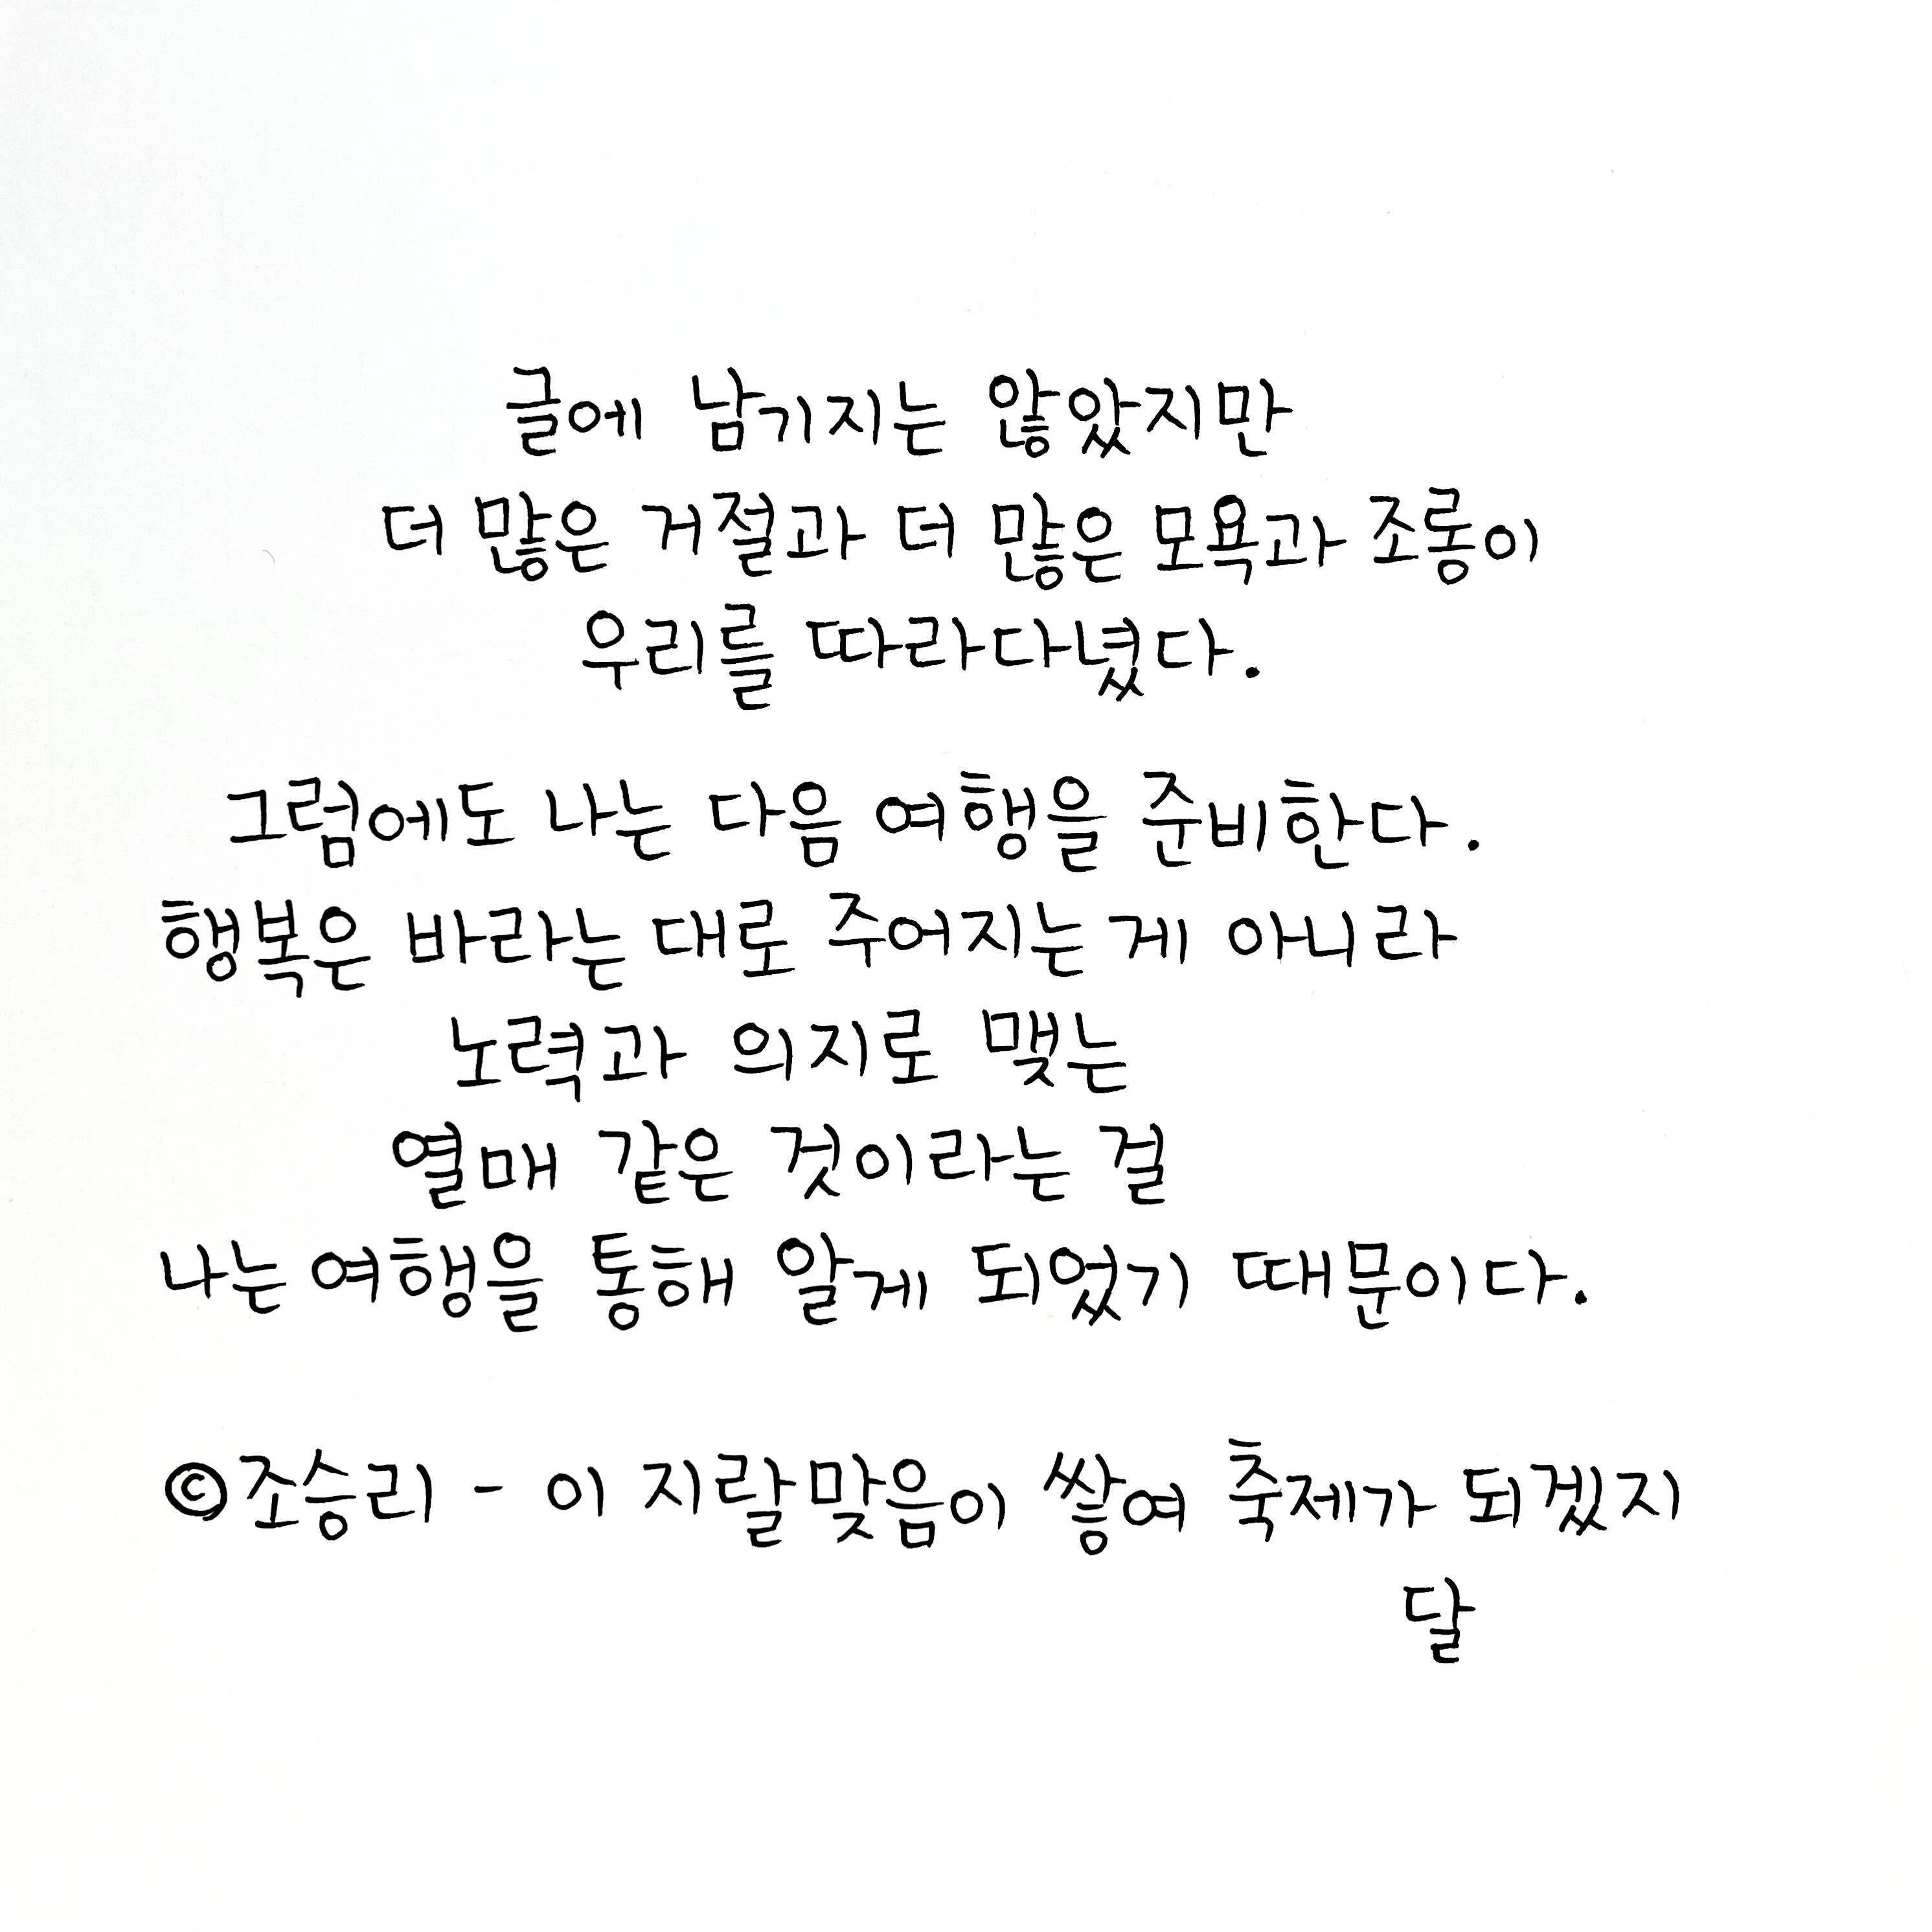 글에 남기지는 않았지만
더 많은 거절과 더 많은 모욕과 조롱이
우리를 따라다녔다.
그럼에도 나는 다음 여행을 준비한다.
행복은 바라는 대로 주어지는 게 아니라
노력과 의지로 맺는
열매 같은 것이라는 걸
나는 여행을 통해 알게 되었기 때문이다.
©조승리 - 이 지랄맞음이 쌓여 축제가 되겠지
달